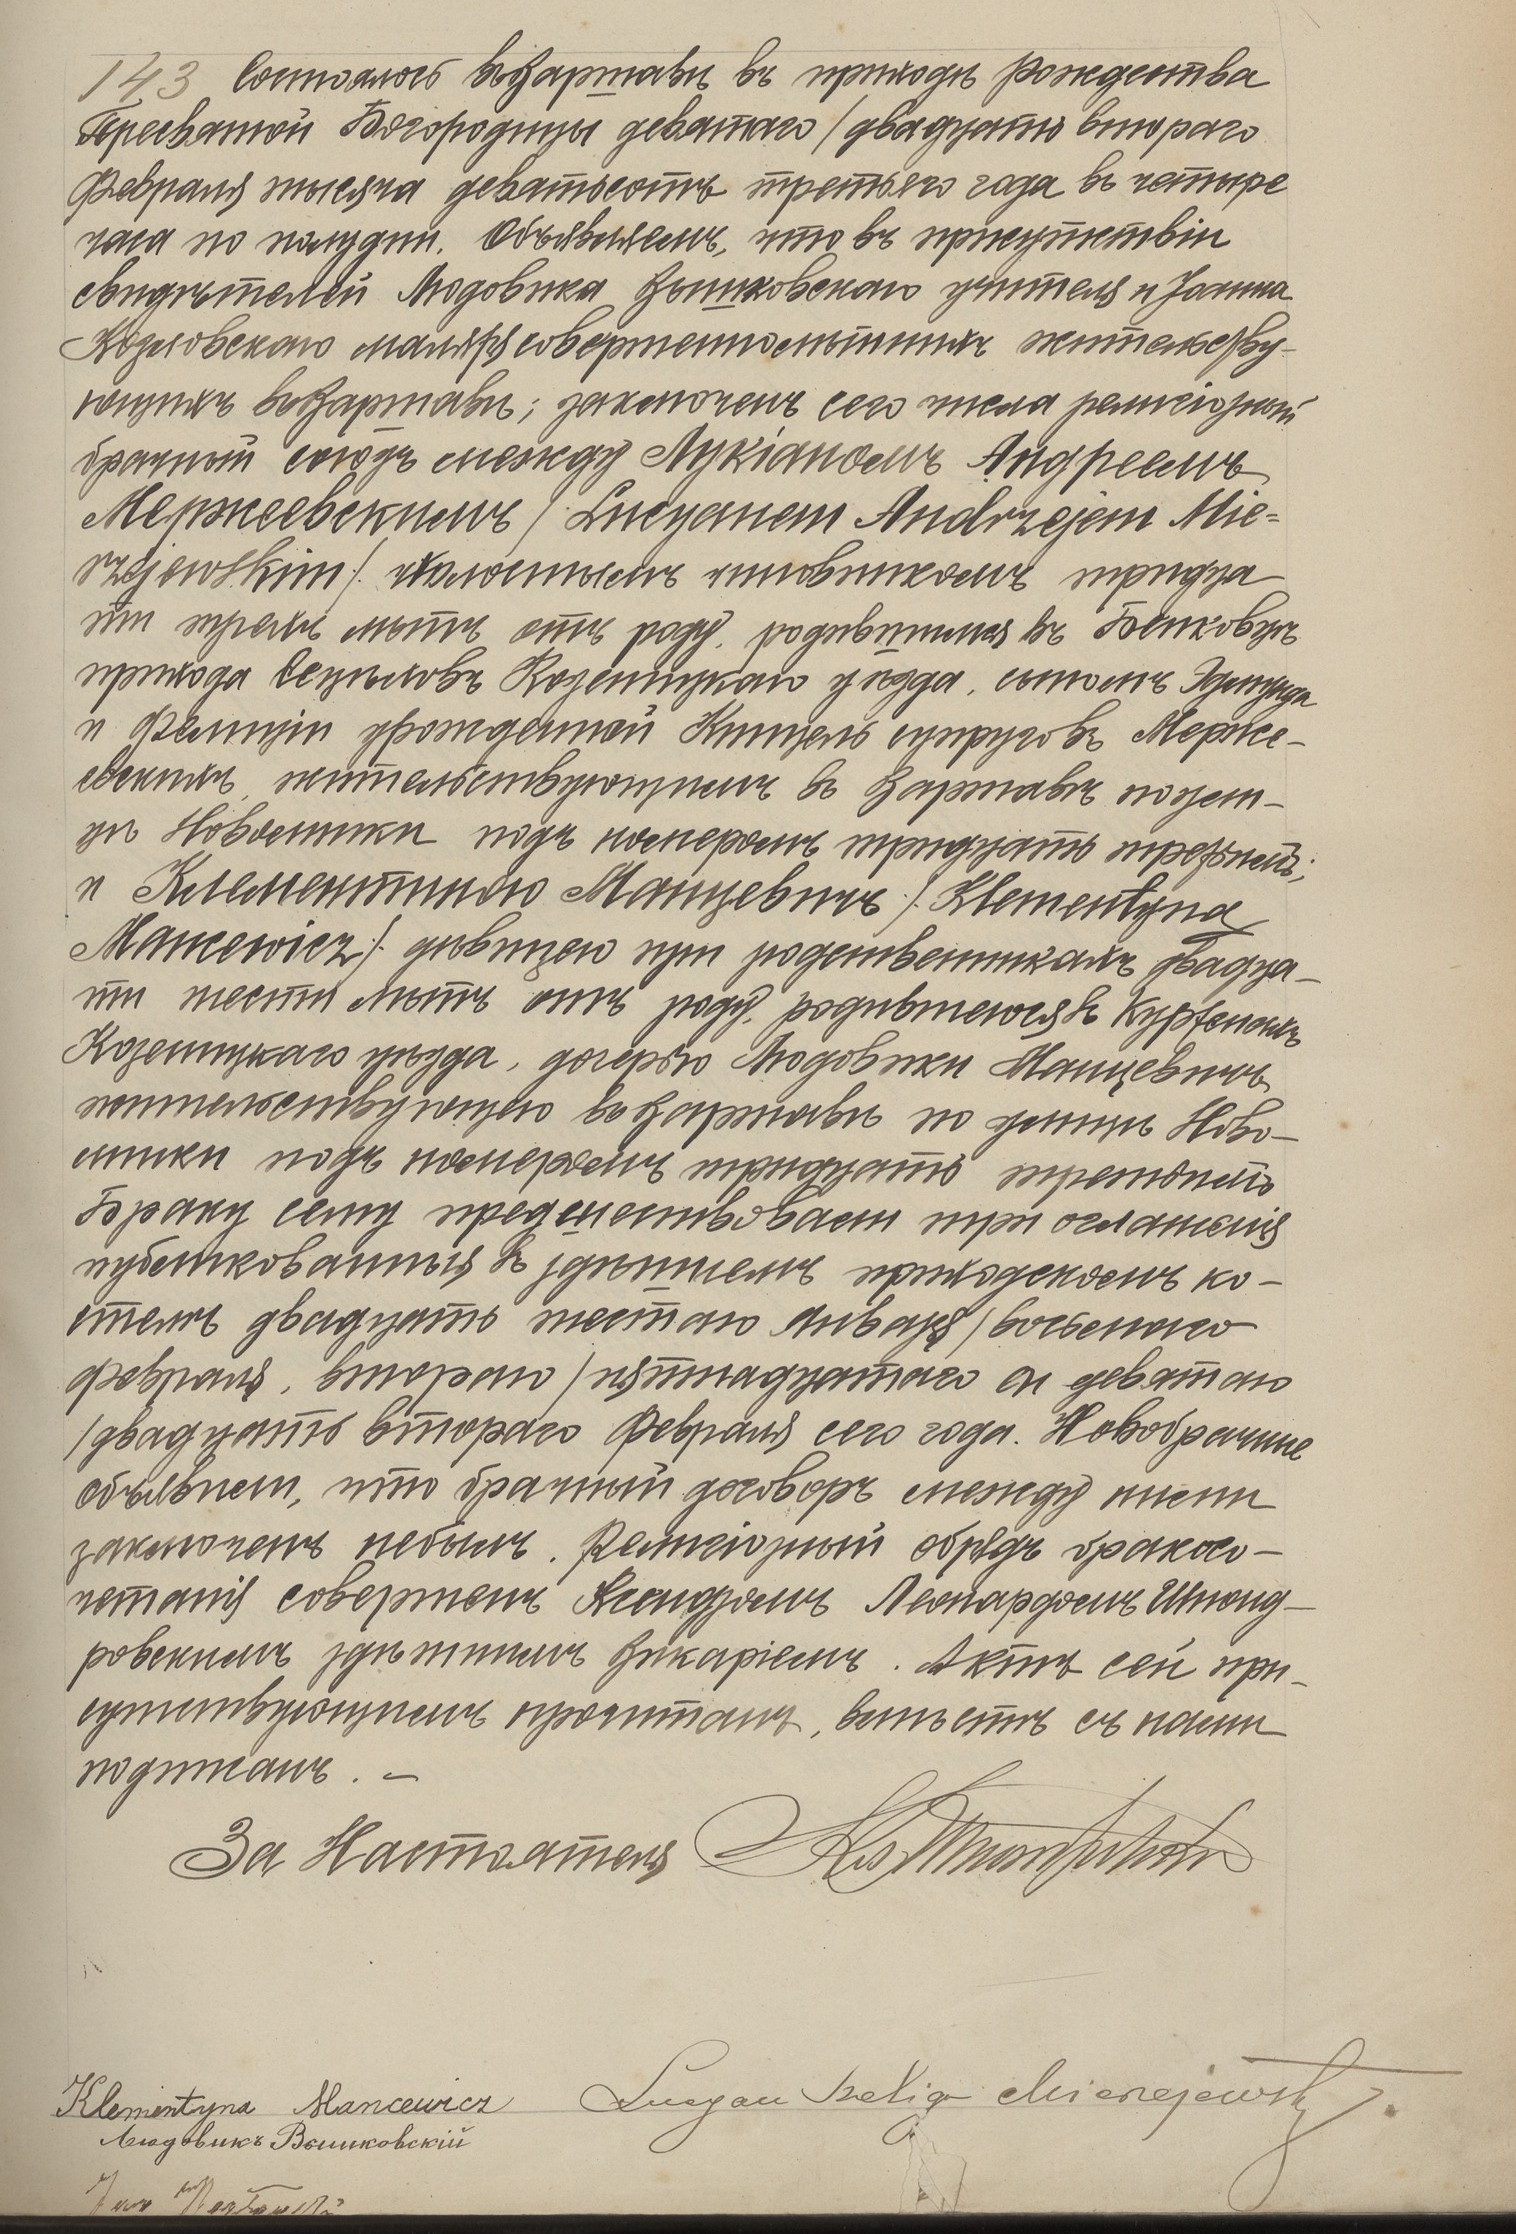 143 Состоялось въ Варшавѣ въ приходѣ Рождества
Пресвятой Богородицы девятаго / двадцать втораго
Февраля тысяча девятьсотъ третьяго года въ четыре
часа по полудни. Объявляемъ, что въ присутствіи
свидѣтелей Людовика Вышковскаго учителя и Іоанна
Козловскаго маляря совершеннолѣтнихъ жительству-
ющихъ въ Варшавѣ; заключенъ сего числа религіозный
брачный союзъ между Лукіаномъ Андреемъ
Мержеевскимъ /:Lucyanem Andrzejem Mie=
rzejewskim:/ холостымъ чиновникомъ тридца-
ти трехъ лѣтъ отъ роду, родившимся въ
прихода Сецѣховъ Козеницкаго уѣзда, сыномъ Эдмунда
и Фелиціи урожденной супруговъ Мерже-
евскихъ, жительствующимъ въ Варшавѣ по ули-
цѣ Новолипки подъ номеромъ тридцать третьимъ;
и Клементиною Манцевичъ /:Klementyna
Mancewicz:/ дѣвицею при родственникахъ двадца-
ти шести лѣтъ отъ роду, родившеюся въ
Козеницкаго уѣзда, дочерью Людовики Манцевичъ
жительствующею въ Варшавѣ по улицѣ Ново-
липки подъ номеромъ тридцать третьимъ
Браку сему предшествовали три оглашенія
публикованныя въ здѣшнемъ приходскомъ ко-
стелѣ двадцать шестаго Января / восьмого
Февраля, втораго / пятнадцатаго и девятаго
/ двадцать втораго Февраля сего года. Новобрачные
объявили, что брачный договоръ между ними
заключенъ небылъ. Религіозный обрядъ бракосо-
четанія совершенъ Ксендзомъ Леонардомъ
ровскимъ здѣшнимъ Викаріемъ. Актъ сей при-
сутствующимъ прочитанъ, вмѣстѣ съ нами
подписанъ. –
За Настоятеля
Klementyna Mancewicz
Lucyan Mierzejewski
Людовикъ Вышковскій